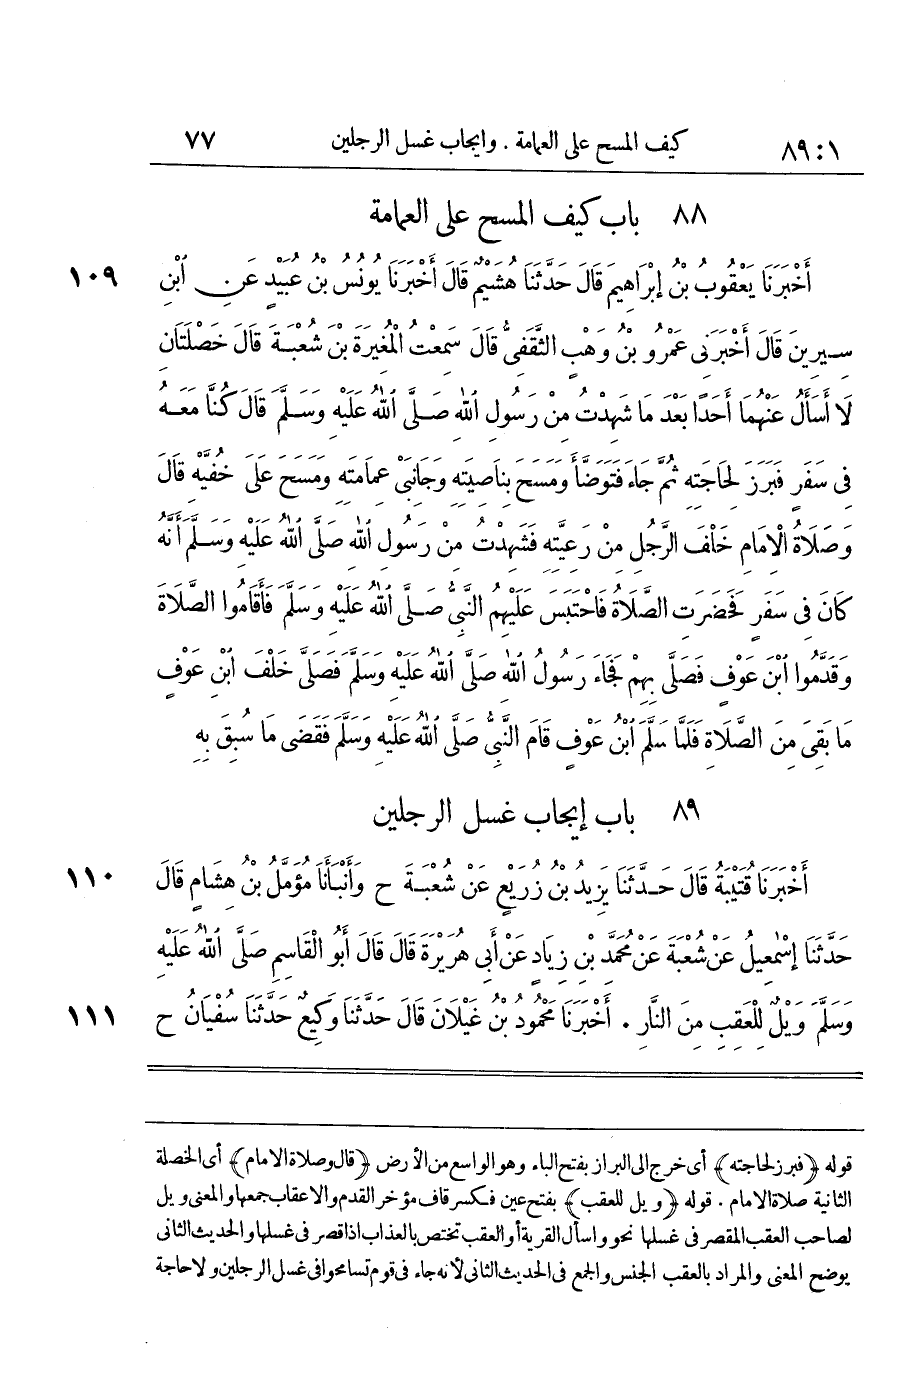 ٨٩:١ كيف المسح على العمامة . وايجاب غسل الرجلين ٧٧
٨٨ باب كيف المسح على العمامة
أَخْبَرَنَا يَعْقُوبُ بْنُ إِبْرَاهِيمَ قَالَ حَدَّثَنَا هُشَيْمٌ قَالَ أَخْبَرَنَا يُونُسُ بْنُ عُبَيْدٍ عَنِ ٱبْنِ ١٠٩
سِيرِينَ قَالَ أَخْبَرَنِى عَمْرُو بْنُ وَهْبٍ الثَّقَفِىُّ قَالَ سَمِعْتُ الْمُغِيرَةَ بْنَ شُعْبَةَ قَالَ خَصْلَتَانِ
لَا أَسْأَلُ عَنْهُمَا أَحَدًا بَعْدَ مَا شَهِدْتُ مِنْ رَسُولِ ٱللهِ صَلَّى ٱللهُ عَلَيْهِ وَسَلَّمَ قَالَ كُنَّا مَعَهُ
فِى سَفَرٍ فَبَرَزَ لِحَاجَتِهِ ثُمَّ جَاءَ فَتَوَضَّأَ وَمَسَحَ بِنَاصِيَتِهِ وَجَانِبَىْ عِمَامَتِهِ وَمَسَحَ عَلَى خُفَّيْهِ قَالَ
وَصَلَاةُ الْإِمَامِ خَلْفَ الرَّجُلِ مِنْ رَعِيَّتِهِ فَشَهِدْتُ مِنْ رَسُولِ ٱللهِ صَلَّى ٱللهُ عَلَيْهِ وَسَلَّمَ أَنَّهُ
كَانَ فِى سَفَرٍ فَحَضَرَتِ الصَّلَاةُ فَاحْتَبَسَ عَلَيْهِمُ النَّبِىُّ صَلَّى ٱللهُ عَلَيْهِ وَسَلَّمَ فَأَقَامُوا الصَّلَاةَ
وَقَدَّمُوا ٱبْنَ عَوْفٍ فَصَلَّى بِهِمْ فَجَاءَ رَسُولُ ٱللهِ صَلَّى ٱللهُ عَلَيْهِ وَسَلَّمَ فَصَلَّى خَلْفَ ٱبْنِ عَوْفٍ
مَا بَقِىَ مِنَ الصَّلَاةِ فَلَمَّا سَلَّمَ ٱبْنُ عَوْفٍ قَامَ النَّبِىُّ صَلَّى ٱللهُ عَلَيْهِ وَسَلَّمَ فَقَضَى مَا سُبِقَ بِهِ
٨٩ باب إيجاب غسل الرجلين
أَخْبَرَنَا قُتَيْبَةُ قَالَ حَدَّثَنَا يَزِيدُ بْنُ زُرَيْعٍ عَنْ شُعْبَةَ ح وَأَنْبَأَنَا مُؤَمَّلُ بْنُ هِشَامٍ قَالَ ١١٠
حَدَّثَنَا إِسْمٰعِيلُ عَنْ شُعْبَةَ عَنْ مُحَمَّدِ بْنِ زِيَادٍ عَنْ أَبِى هُرَيْرَةَ قَالَ قَالَ أَبُو الْقَاسِمِ صَلَّى ٱللهُ عَلَيْهِ
وَسَلَّمَ وَيْلٌ لِلْعَقِبِ مِنَ النَّارِ . أَخْبَرَنَا مَحْمُودُ بْنُ غَيْلَانَ قَالَ حَدَّثَنَا وَكِيعٌ حَدَّثَنَا سُفْيَانُ ح ١١١
قوله ﴿فبرز لحاجته﴾ أى خرج الى البراز بفتح الباء وهو الواسع من الأرض ﴿قال وصلاة الامام﴾ أى الخصلة
الثانية صلاة الامام . قوله ﴿ويل للعقب﴾ بفتح عين فكسر قاف مؤخر القدم والاعقاب جمعها والمعنى ويل
لصاحب العقب المقصر فى غسلها نحو واسأل القرية أو العقب تختص بالعذاب اذا قصر فى غسلها والحديث الثانى
يوضح المعنى والمراد بالعقب الجنس والجمع فى الحديث الثانى لأنه جاء فى قوم تسامحوا فى غسل الرجلين ولا حاجة